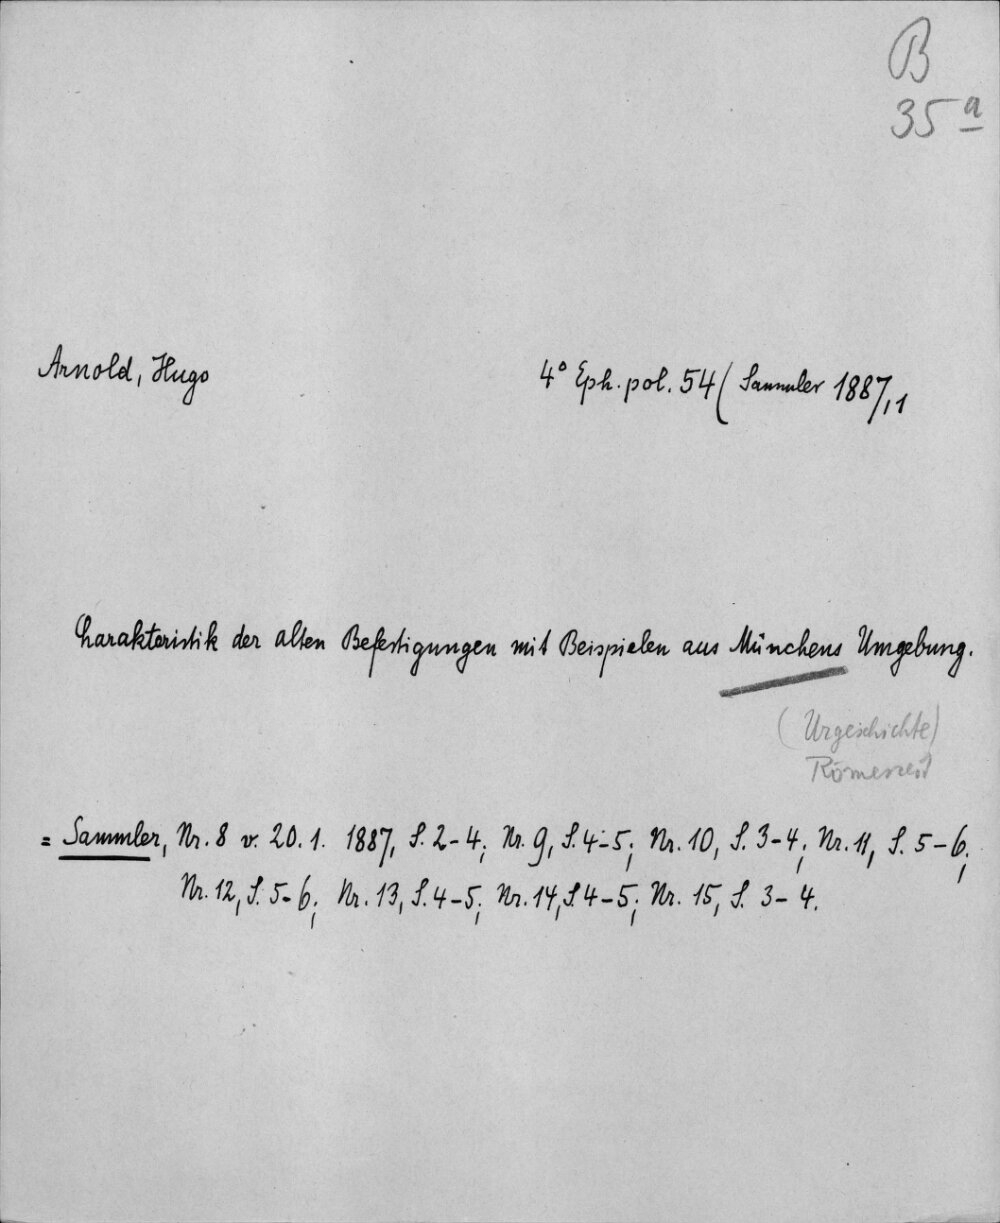 B
35 a
Arnold, Hugo
4° Eph. pol. 54 ( Sammler 1887,1
Charakteristik der alten Befestigungen mit Beispielen aus Münchens Umgebung.
(Urgeschichte)
Römerzeit
= Sammler, Nr. 8 v. 20. 1. 1887, S. 2-4; Nr. 9, S. 4-5; Nr. 10, S. 3-4; Nr. 11, S. 5-6;
Nr. 12, S. 5-6; Nr. 13, S. 4-5; Nr. 14, S. 4-5; Nr. 15, S. 3-4.